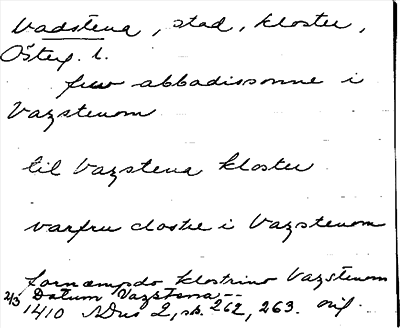 Vadstena, stad, kloster,
Österg. l.
frw abbadissonne i
Vazstenom
til Vazstena kloster
varfru closte i Vazstenom
fornæmpdo klostrino Vazstenom
2/3 Datum Vazstena --
1410 SDns 2, sk. 262, 263. orig.